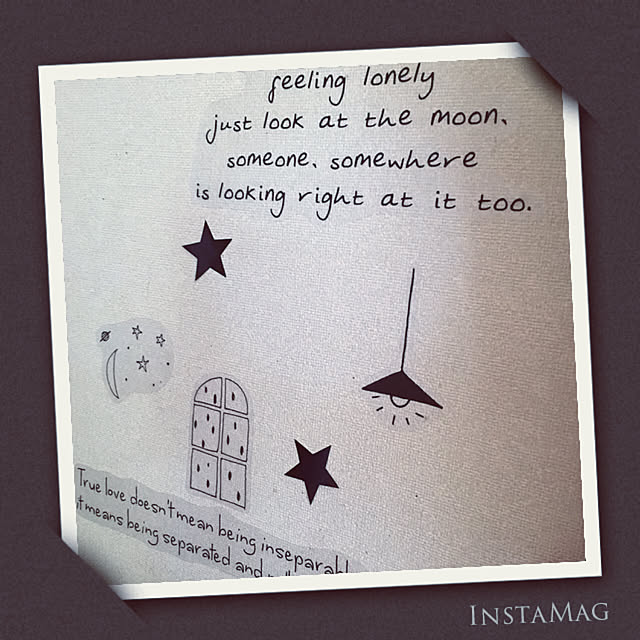 feeling lonely
just look at the moon.
someone. somewhere
is looking right at it too.
True love doesn't mean being
it means being separated and
INSTAMAG